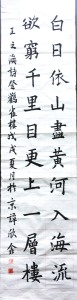 白日依山盡黃河入海流
欲窮千里目更上一層樓
王之渙詩登鸛雀樓戊戌夏月於京諄欽金